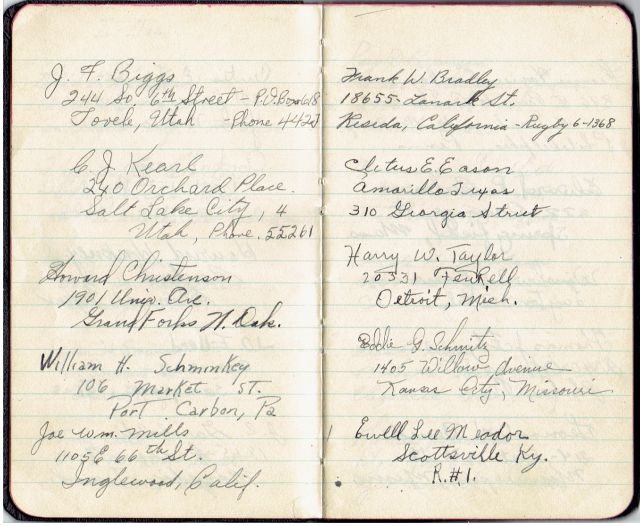 J. F. Biggs
244 So. 6th Street - P.O. Box 618
Tovele, Utah - Phone 442J
C J Kearl
240 Orchard Place.
Salt Lake City, 4
Utah, Phone. 55261
Howard Christenson
1901 Univ. Ave.
Grand Forks N. Dak.
William H. Schminkey
106 Market ST.
Port Carbon, Pa
Joe Wm. Mills
1105 E 66th St.
Inglewood, Calif.
Frank W. Bradley
18655 Lanark St.
Reseda, California - Rugby 6-1368
Cletus E. Eason
Amarillo Texas
310 Georgia Street
Harry W. Taylor
20331 Fenkell
Detroit, Mich.
Eddie G. Schmitz
1405 Willow Avenue
Kansas City, Missouri
Ewell Lee Meador
Scottsville Ky.
R.#1.